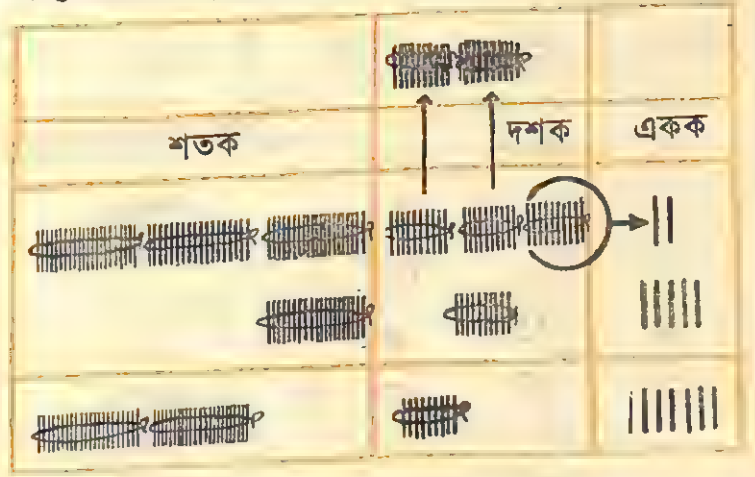 শতক দশক একক